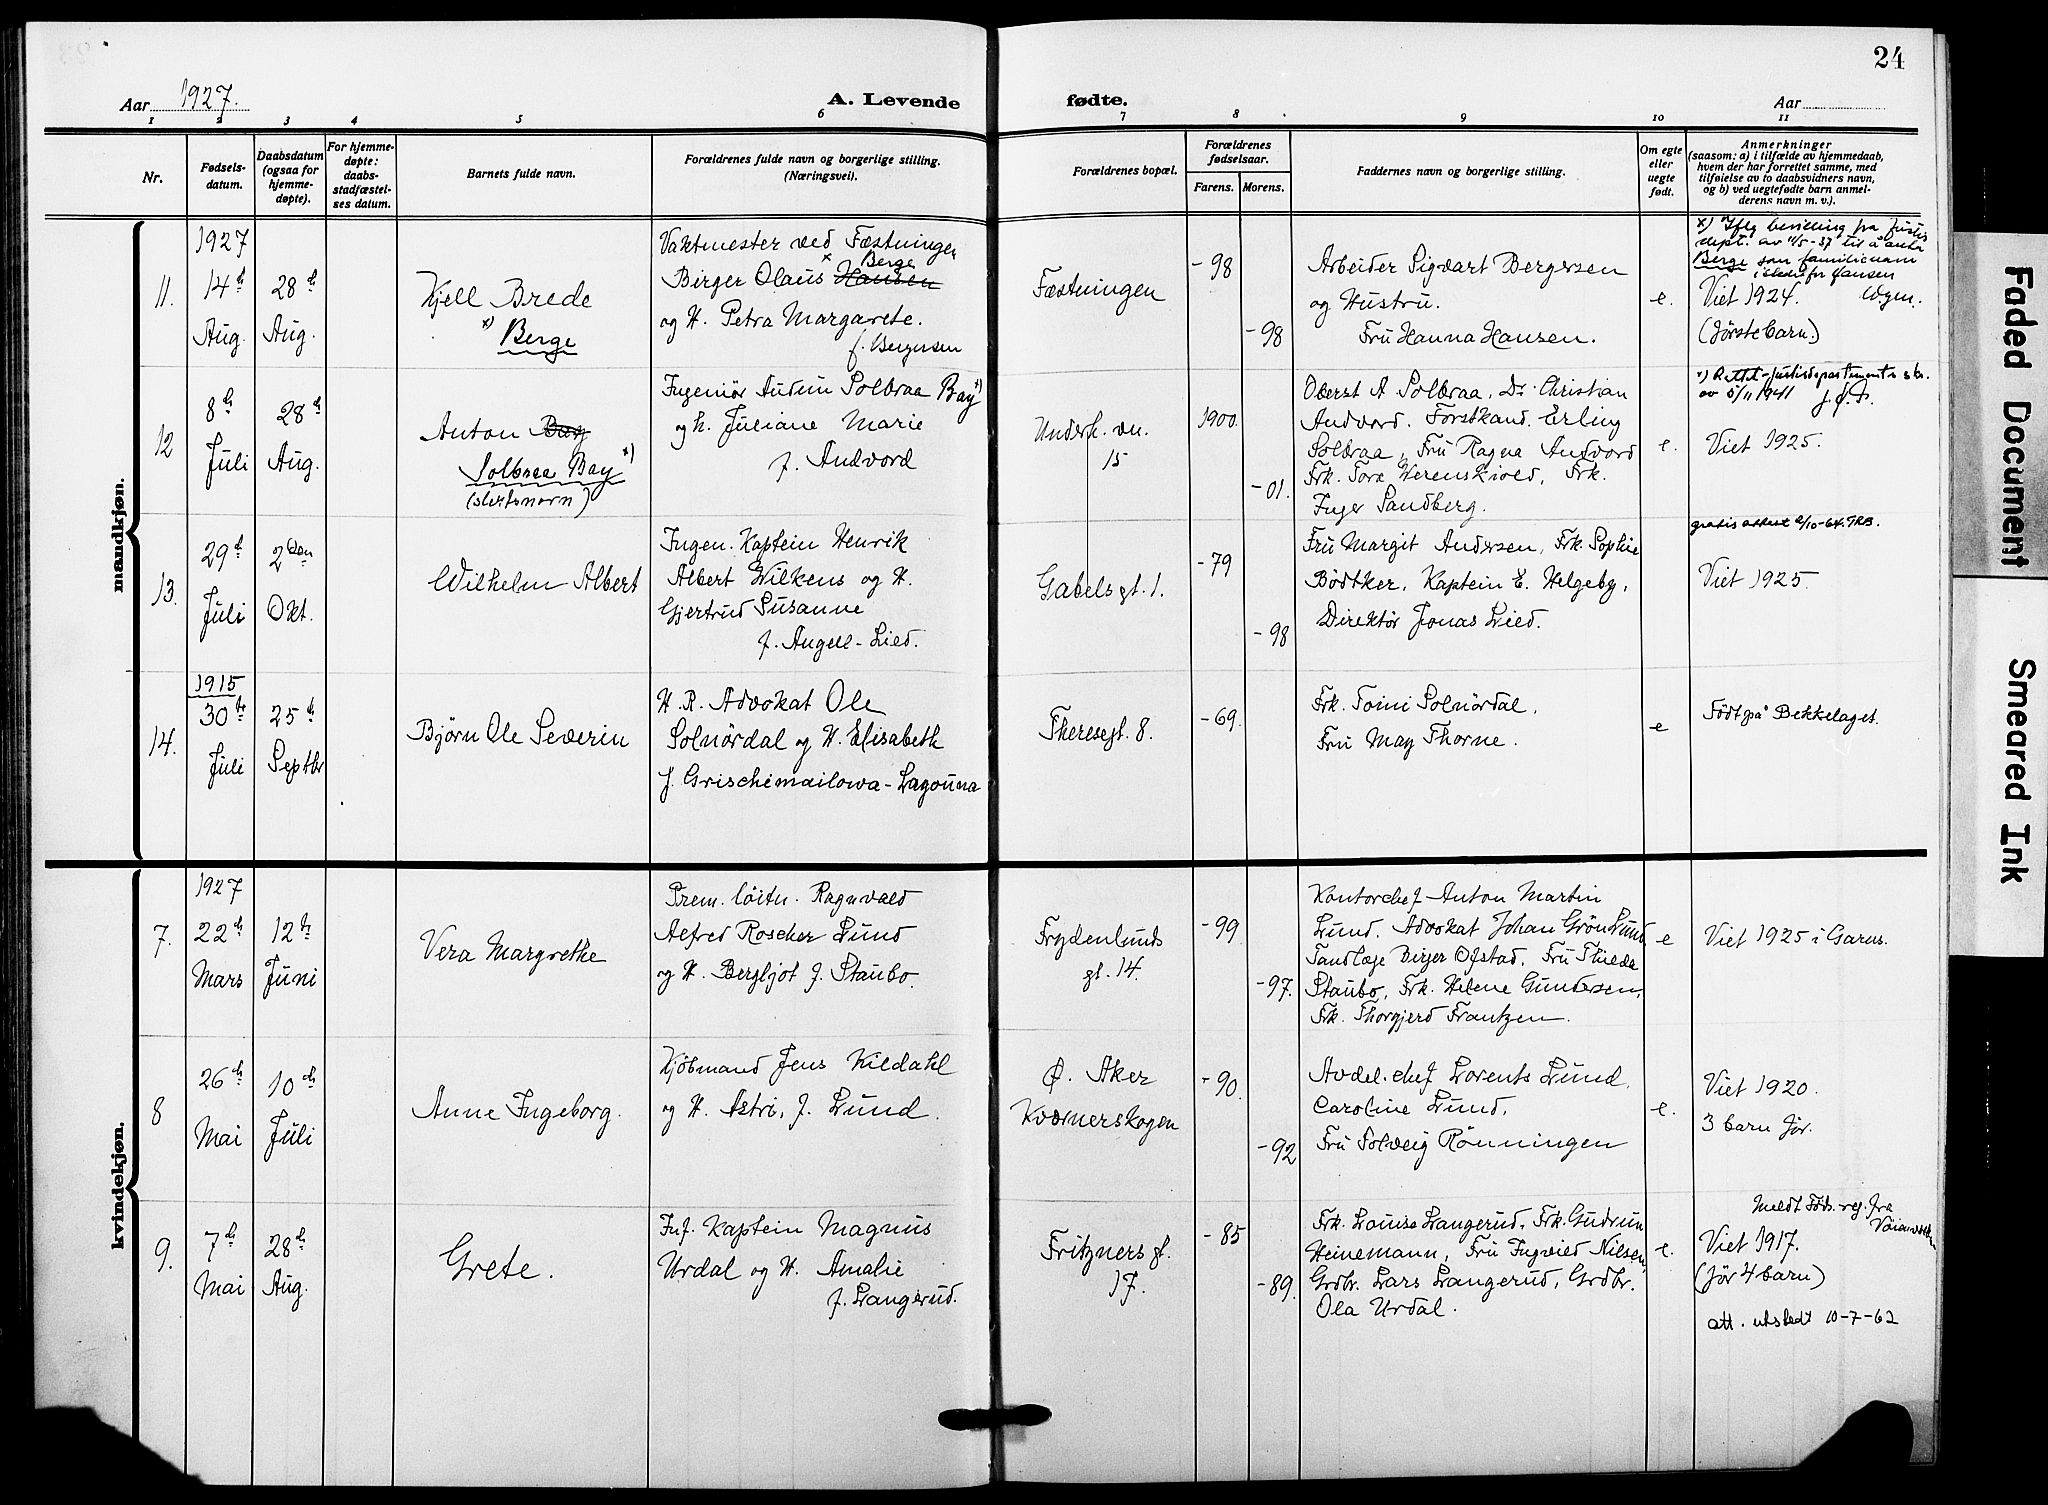 24
Aar 1927.
A. Levende fødte.
Aar
1 2 3 4 5 6 7 8 9 10 11
Nr.
Fødsels-
datum.
Daabsdatum
(ogsaa for
hjemme-
døpte).
For hjemme-
døpte:
daabs-
stadfæstel-
ses datum.
Barnets fulde navn.
Forældrenes fulde navn og borgerlige stilling.
(Næringsvei).
Forældrenes bopæl.
Forældrenes
fødselsaar.
Farens. Morens.
Faddernes navn og borgerlige stilling.
Om egte
eller
uegte
født.
Anmerkninger
(saasom: a) i tilfælde av hjemmedaab,
hvem der har forrettet samme, med
tilføielse av to daabsvidners navn,
og b) ved uegtefødte barn anmel-
derens navn m. v.).
mandkjøn.
11.
1927
14de
Aug.
28de
Aug.
Kjell Brede
x) Berge
Vaktmester ved Fæstningen
Berge
Birger Olaus x Hansen
og H. Petra Margarete.
f. Bergersen
Fæstningen
-98
-98
Arbeider Sigvart Bergersen
og Hustru.
Fru Hanna Hansen.
e.
x) Iflg bevilling fra Justis
dept. av 11/5-37 til å anta
Berge som familienavn
i stedet for Hansen
Viet 1924.
(første barn.)
12
8de
Juli
28de
Aug.
Anton Bay
Solbraa Bay x)
(slektsnavn)
Ingeniør Audun Solbraa Bay x)
og h. Juliane Marie
f. Andvord
Underh. vn.
15
1900.
-01.
Oberst A Solbraa, Dr. Christian
Andvord. Forstkand. Erling
Solbraa, Fru Ragna Andvord
Frk. Tora Werenskiold, Frk.
Inger Sandberg.
e.
x) Rettet - Justisdepartementets skr.
av 5/11 1941
Viet 1925.
13.
29de
Juli
2den
Okt.
Wilhelm Albert
Ingen. Kaptein Henrik
Albert Wilkens og H.
Gjertrud Susanne
f. Angell-Lied.
Gabels gt. 1.
-79
-98
Fru Margit Andersen, Frk. Sophie
Bödtker, Kaptein E. Helgeby,
Direktör Jonas Lied.
gratis attest 2/10-64. TRB.
Viet 1925.
14.
1915
30te
Juli
25de
Septbr
Björn Ole Severin
H. R. Advokat Ole
Solnördal og H. Elisabeth
f. Grischimailowa-Lagouna
Theresegt. 8.
-69.
Frk. Toini Solnördal.
Fru May Thorne.
e
Født på Bekkelaget.
kvindekjøn.
7.
1927
22de
Mars
12te
Juni
Vera Margrethe
Prem. löitn. Ragnvald
Alfred Roscher Lund
og H. Bergljot f. Staubo.
Frydenlunds
gt. 14.
-99
-97.
Kontorchef Anton Martin
Lund. Advokat Johan Grön Lund,
Tandlæge Birger Ofstad. Fru Thilda
Staubo, Frk. Helene Gundersen,
Frk. Thorgjerd Frantzen.
e
Viet 1925 i Garns.
8
26de
Mai
10de
Juli
Anne Ingeborg.
Kjöbmand Jens Kildahl
og H. Astri, f. Lund.
Ø. Aker
Kværnerskogen
-90.
-92
Avdel. chef Lorents Lund.
Caroline Lund.
Fru Solveig Rönningen
e.
Viet 1920.
3 barn för.
9.
7de
Mai
28de
Aug.
Grete.
Inf. Kaptein Magnus
Urdal og H. Amalie
f. Langerud.
Fritzners gt.
17.
-85
-89.
Frk. Louise Langerud, Frk. Gudrun
Heinemann, Fru Ingvild Nilsen,
Grdbr. Lars Langerud, Grdbr.
Ola Urdal.
e.
Meldt Föds. reg. fra
Viet 1917.
(før 4 barn)
att. utstedt 10-7-62
Faded Document
Smeared Ink